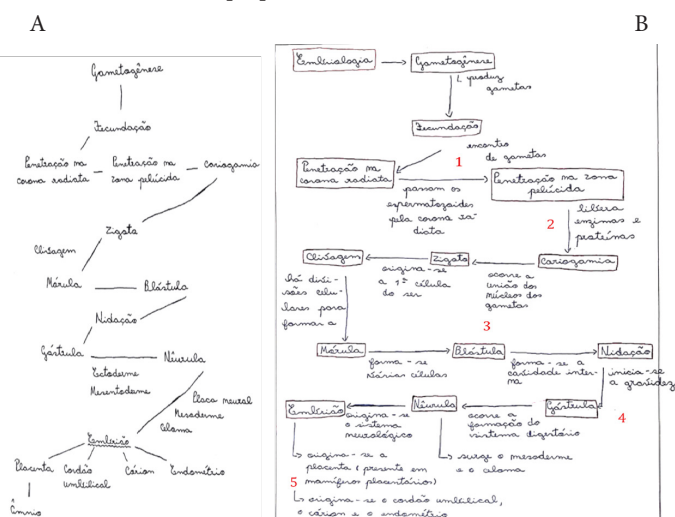 A
B
Gametogênese
Fecundação
Penetração na
corona radiata
Penetração na
zona pelúcida
Cariogamia
Zigoto
Clivagem
Mórula
Blástula
Nidação
Gástrula
Nêurula
Ectoderme
Mesentoderme
Placa neural
Mesoderme
Celoma
Embrião
Placenta
Cordão
umbilical
Córion
Endométrio
Âmnio
Embriologia
Gametogênese
produz
gametas
Fecundação
encontro
de gametas
1
Penetração na
corona radiata
passam os
espermatozoides
pela corona ra-
diata
Penetração na zona
pelúcida
2
libera
enzimas e
proteínas
Clivagem
Zigoto
Cariogamia
origina-se
a 1ª célula
do ser
ocorre a
união dos
núcleos dos
gametas
há divi-
sões celu-
lares para
formar a
3
Mórula
Blástula
Nidação
forma-se
várias células
forma-se a
cavidade inter-
na
inicia-se
a gravidez
Embrião
Nêurula
Gástrula
4
origina-se
o sistema
neurológico
ocorre a
formação do
sistema digestório
surge o mesoderme
e o celoma
origina-se a
placenta (presente em
5
mamíferos placentários)
origina-se o cordão umbilical,
o córion e o endométrio